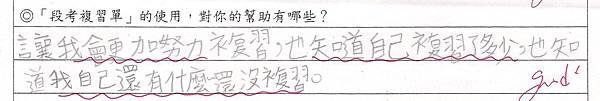 ◎「段考複習單」的使用，對你的幫助有哪些？
讓我會更加努力複習，也知道自己複習了多少，也知
道我自己還有什麼還沒複習。
good!